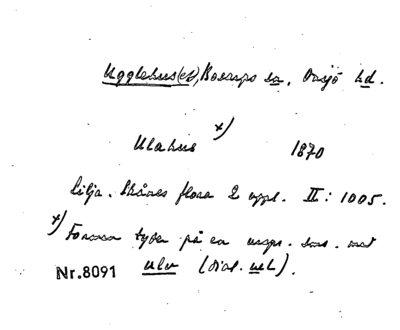 Ugglehus(et), Bosarps sn, Onsjö hd.
x)
Ulahus 1870
Lilja. Skånes flora 2 uppl. II: 1005.
x) Formen tyder på en urspr. sms. med
Nr.8091 ulv (dial. ul).